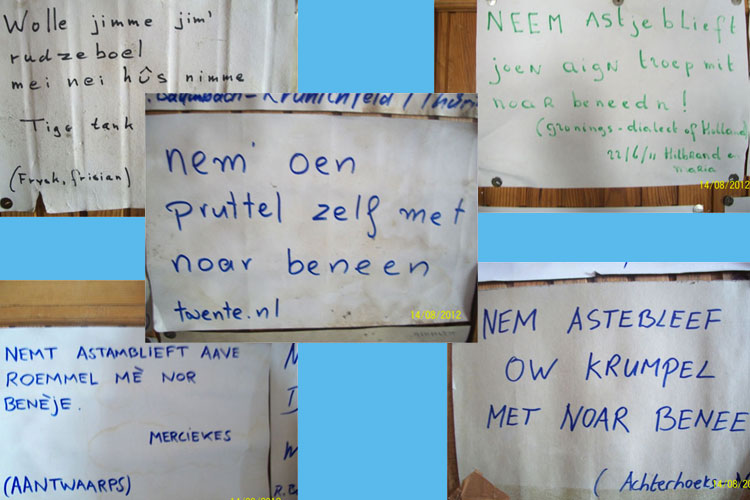 Wolle jimme jim'
rudzeboel
mei nei hûs nimme
Tige tank
(Frysk, frisian)
NEEM AStjeblieft
joen aign troep mit
noar beneedn!
(gronings-dialect of Holland
22/6/11 Hilbrand en
maria
14/08/2012
nem' oen
pruttel zelf met
noar beneen
twente.nl
14/08/2012
NEMT ASTAMBLIEFT AAVE
ROEMMEL MÈ NOR
BENÈJE.
MERCIEKES
(AANTWAARPS)
NEM ASTEBLEEF
OW KRUMPEL
MET NOAR BENEE
(Achterhoeks